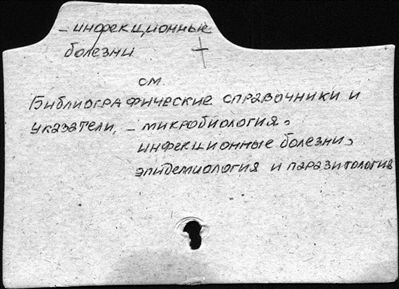 – инфекционные
болезни
см.
Библиографические справочники и
указатели, – микробиология,
инфекционные болезни,
эпидемиология и паразитология